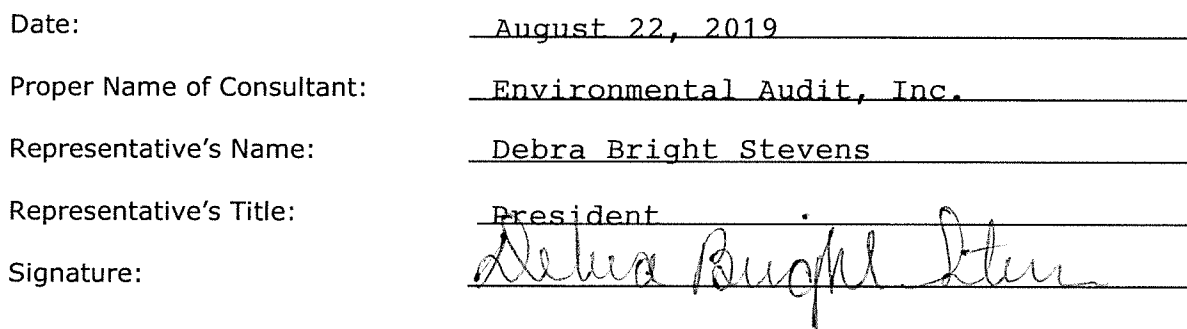 Date: August 22, 2019
Proper Name of Consultant: Environmental Audit, Inc.
Representative's Name: Debra Bright Stevens
Representative's Title: President
Signature: Debra Bright Stevens